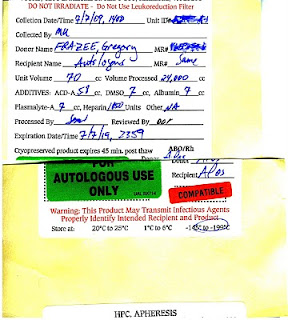 DO NOT IRRADIATE - Do Not Use Leukoreduction Filter
Collection Date/Time 7/7/09, 1400 Unit ID
Collected By MU
Donor Name FRAZEE, Gregory MR#
Recipient Name Autologous MR# Same
Unit Volume 70 cc Volume Processed 24,000 cc
ADDITIVES: ACD-A 58 cc, DMSO 7 cc Albumin 7 cc
Plasmalyte-A 7 cc, Heparin Units Other NA
Processed By Reviewed By
Expiration Date/Time 7/7/19, 2359
Cryopreserved product expires 45 min. post thaw ABO/Rh
FOR
AUTOLOGOUS USE
ONLY
Recipient A Pos
COMPATIBLE
Warning: This Product May Transmit Infectious Agents
Properly Identify Intended Recipient and Product
Store at: 20°C to 25°C 1°C to 6°C
HPC, APHERESIS